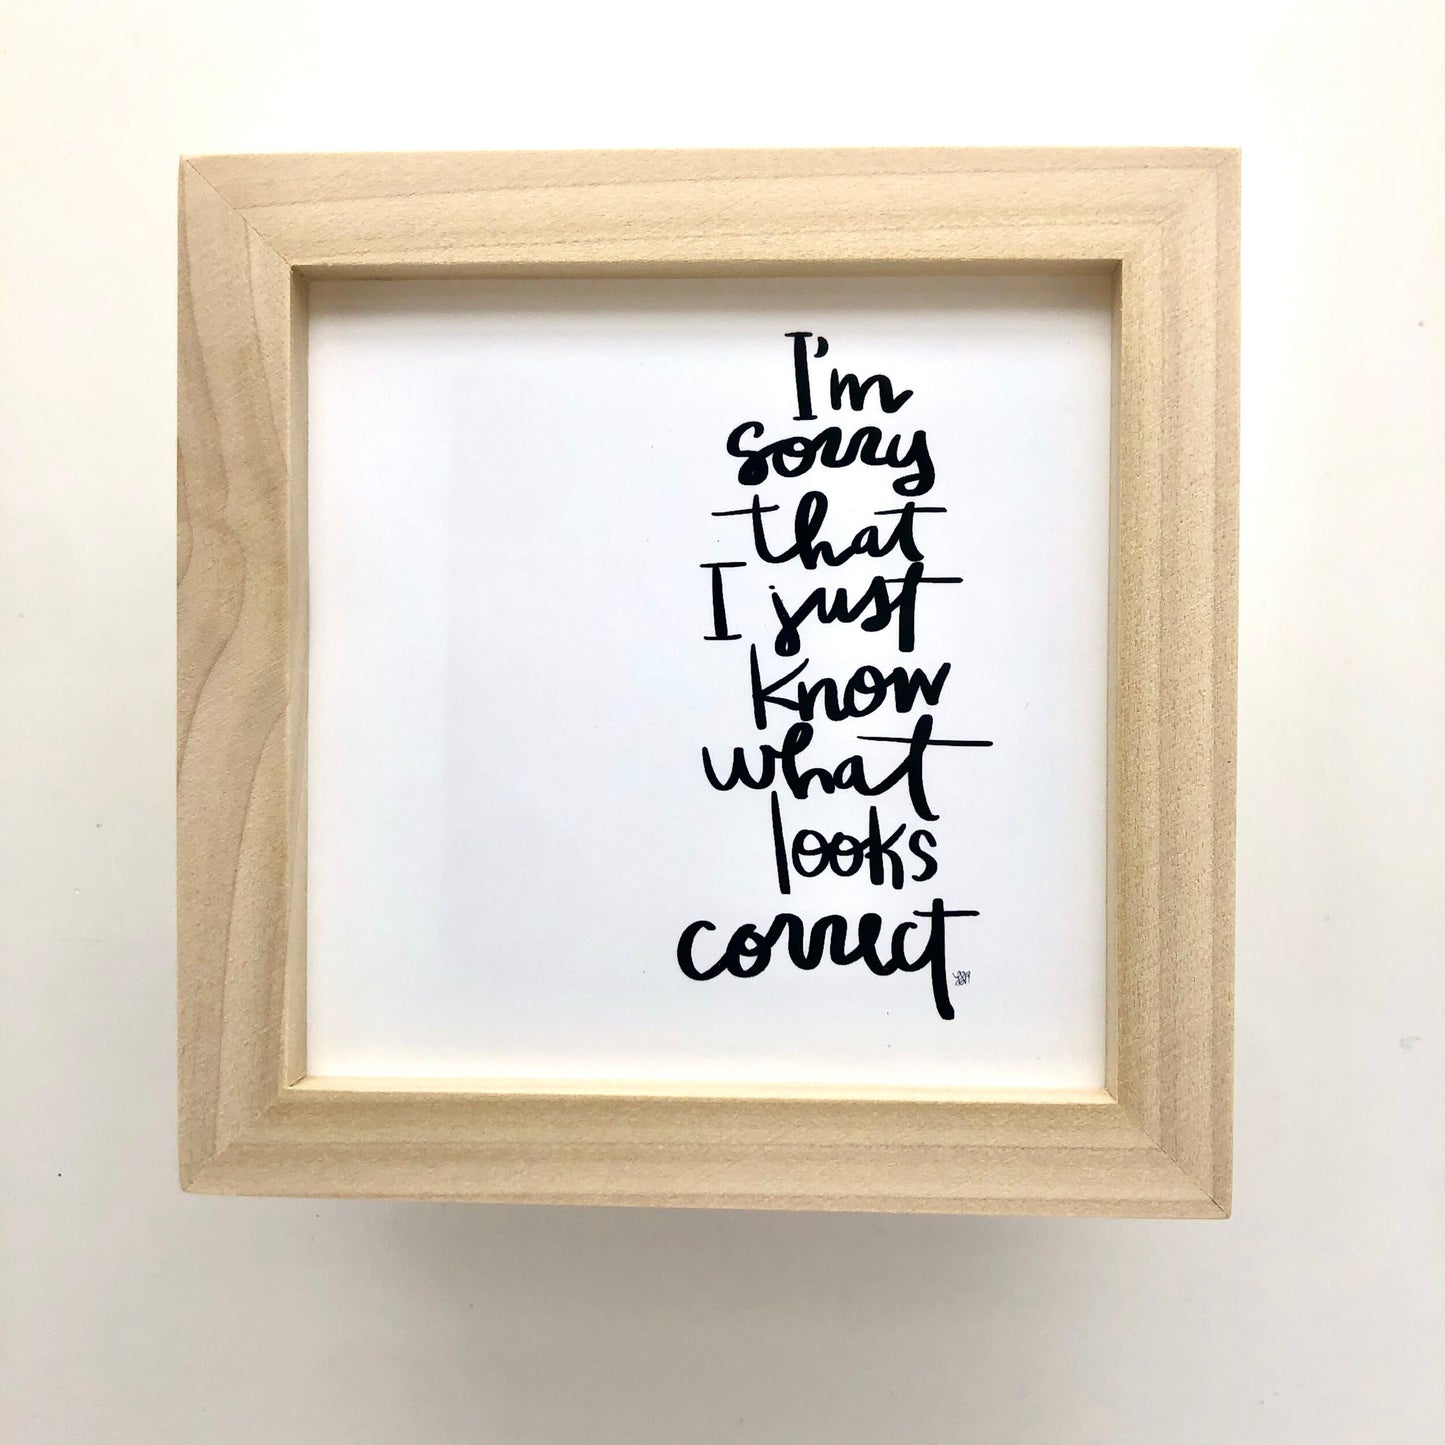 I'm
sorry
that
I just
know
what
looks
correct